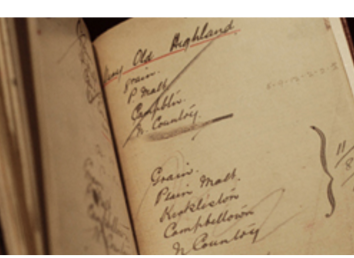 Very Old Highland
Grain.
P Malt.
Campbln.
N Country.
Grain.
Plain Malt.
Kirkliston
Campbeltown
N Country
11